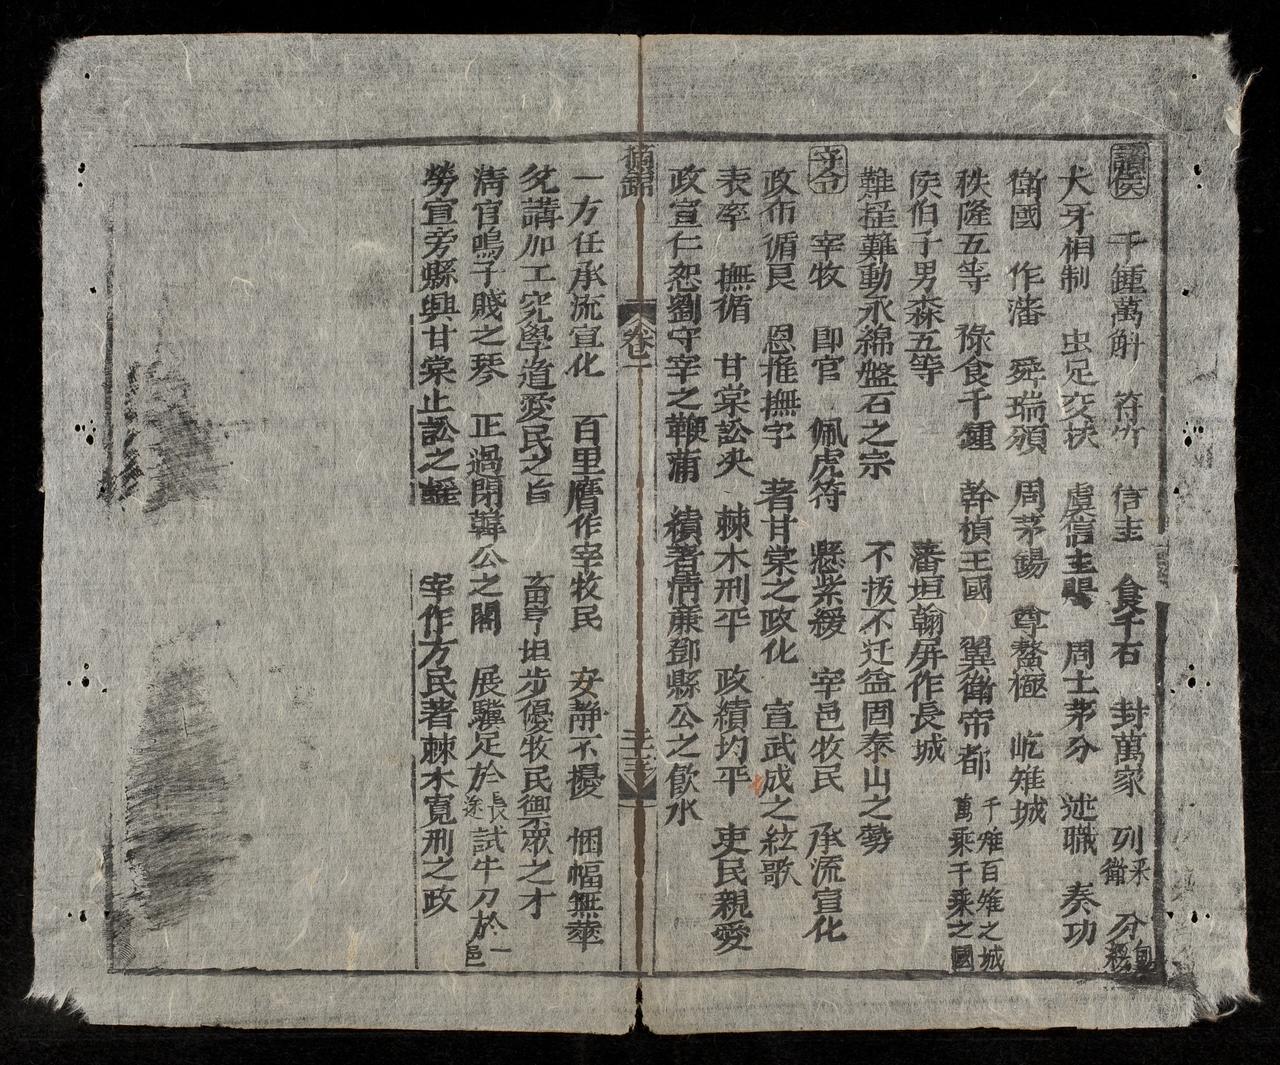 諸侯 千鍾萬斛 符竹 信圭 食千石 封萬家 列采衛 分甸
犬牙相制 虫足交扶 虞信圭賜 周土茅分 述職 奏功
衛國 作藩 舜瑞頒 周茅錫 尊鰲極 屹雉城
秩隆五等 祿食千鍾 幹楨王國 翼衛帝都 千雉百雉之城 萬乘千乘之國
侯伯子男森五等 藩垣翰屏作長城
難搖難動永綿盤石之宗 不拔不迁益固泰山之勢
守令 宰牧 卽官 佩虎符 懸紫綬 宰邑牧民 承流宣化
政布循良 恩推撫字 著甘棠之政化 宣武成之絃歌
表率 撫循 甘棠訟决 棘木刑平 政績均平 吏民親愛
政宣仁恕劉守宰之鞭蒲 績著淸廉鄧縣公之飮水
摘錦 卷一 二十三
一方任承流宣化 百里膺作宰牧民 安靜不擾 悃愊無華
兌講加工究學道愛民之旨 亨坦步優牧民御衆之才
淸官鳴子賤之琴 正過閉韓公之閣 展驥足於長途 試牛刀於一邑
勞宣旁縣興甘棠止訟之謠 宰作方民著棘木寬刑之政